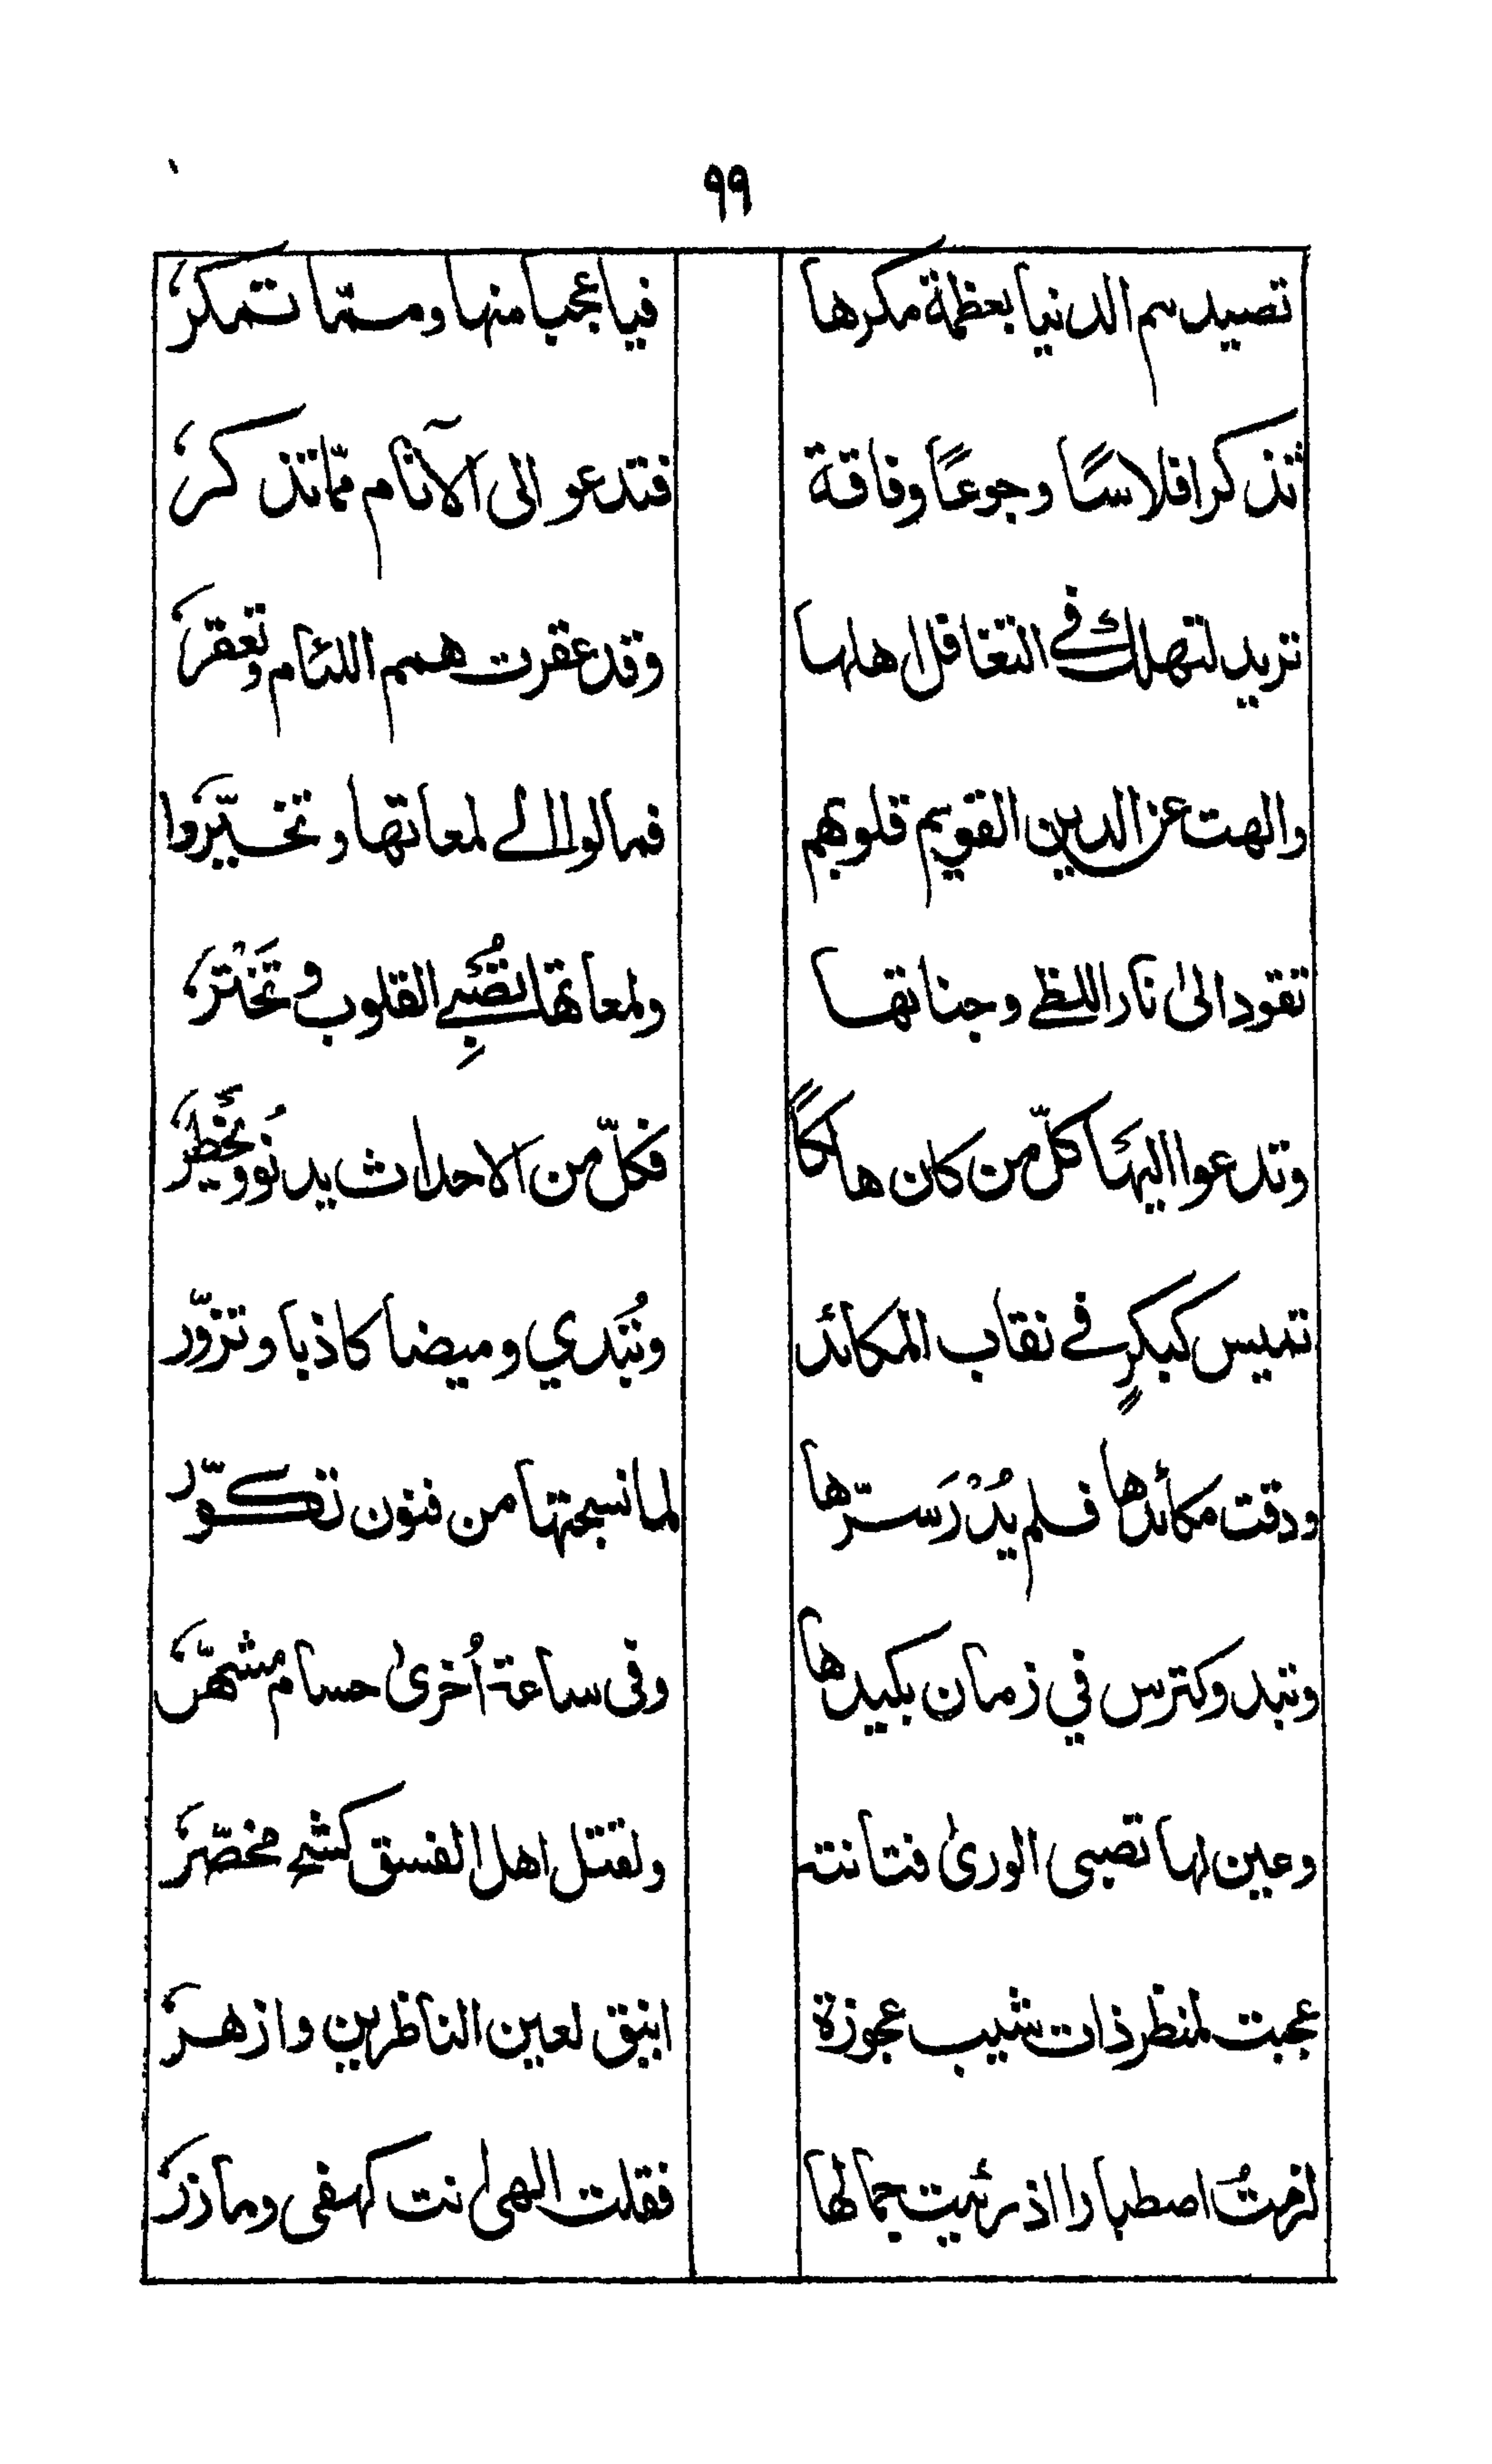 ٩٩
تصيدهم الدنيا بعظمة مكرها فيا عجبا منها ومـمّا تمكرُ
تذكر افلاسًا وجوعًا وفاقة فتدعو الى الآثام ممّا تذكرُ
تريد لتهلك في التغافل اهلها وقد عقرت همم اللئام وتعقرُ
والهت عن الدين القويم قلوبهم فمالوا الى لمعاتها وتخيّروا
تقود الىٰ نار اللظى وجناتها ولمعاتها تُصْبِي القلوب وتَخْترُ
وتدعوا اليهَا كلّ من كان هالكًا فكلّ من الاحداث يدنُو ويَخْطِرُ
تميس كبكرٍ في نقاب المكائد وتُبْدي وميضا كاذبا وتزوّر
ودقت مكائدها فلم يُدْرَ سرّها لما نسجتها من فنون تكوّر
وتبدو كترس في زمان بكيدها وفى ساعة اُخرىٰ حسام مشهّرُ
وعين لها تصبى الورىٰ فتانته ولقتل اهل الفسق كشح مخصّرُ
عجبت لمنظر ذات شيب عجوزة انيق لعين الناظرين وازهرُ
لزمتُ اصطبارا اذ رئيت جمالها فقلت الٰهى انت كهفى ومازرُ